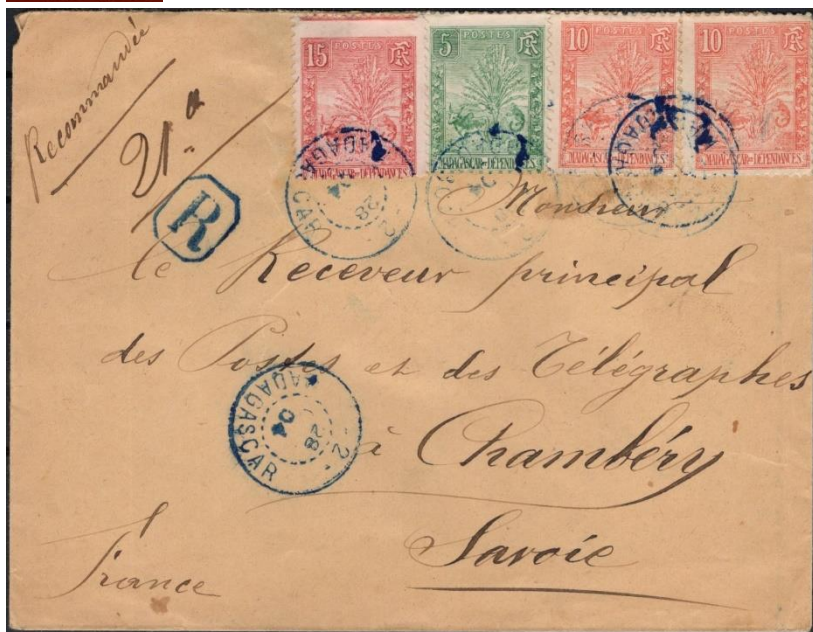 Recommandée
21.a
R
15 POSTES RF
MADAGASCAR ET DÉPENDANCES
5 POSTES RF
MADAGASCAR ET DÉPENDANCES
10 POSTES RF
MADAGASCAR ET DÉPENDANCES
10 POSTES RF
MADAGASCAR ET DÉPENDANCES
MADAGASCAR
28
04
Monsieur
le Receveur principal
des Postes et des Télégraphes
à Chambéry
Savoie
France
MADAGASCAR
28
04
2